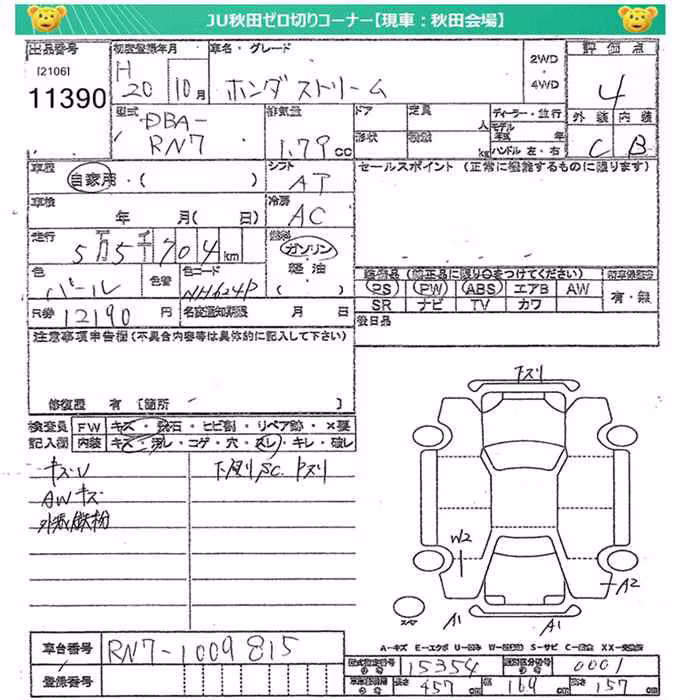 JU秋田ゼロ切りコーナー【現車：秋田会場】
出品番号 初度登録年月 車名・グレード 2WD・4WD 評価点
[2106] 11390 H20 10月 ホンダ ストリーム 4
型式 DBA-RN7 排気量 1.79cc ドア 定員 人 ディーラー・並行 外装 内装
形状 積載 kg モデル年式 年 ハンドル 左・右 C B
車歴 自家用・( ) シフト AT セールスポイント（正常に稼働するものに限ります）
車検 年 月( 日) 冷房 AC
走行 5万5千704km 燃料 ガソリン 軽油 ( )
色 パール 色替 色コード NH624P
装備品(純正品に限り○をつけてください)
PS PW ABS エアB AW 有・無
SR ナビ TV カワ
R券 12190円 名変通知期限 月 日 後日品
注意事項申告欄（不具合内容等は具体的に記入して下さい）
修復歴 有 [箇所 ]
検査員 FW キズ・飛石・ヒビ割・リペア跡・×要
記入欄 内装 キズ・汚レ・コゲ・穴・スレ・キレ・破レ
キズU 下廻りSC.
AWキズ
外装鉄粉
W2
A2
A1
A1
A-キズ E-エクボ U-凹み W-補修跡 S-サビ C-腐食 XX-交換済
車台番号 RN7-1009815
登録番号
型式指定番号の番号 15354 類別区分番号の番号 0001
長さ 457cm 幅 169cm 高さ 157cm